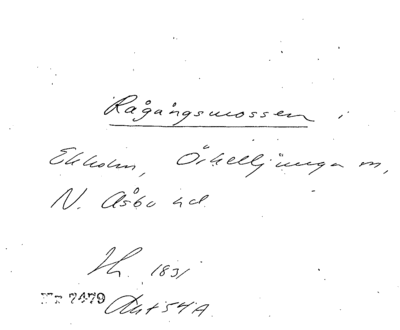 Rågångsmossen i
Ekholm, Örkelljunga m,
N. Åsbo hd
Hn 1831
Nr 7479 Akt 54A